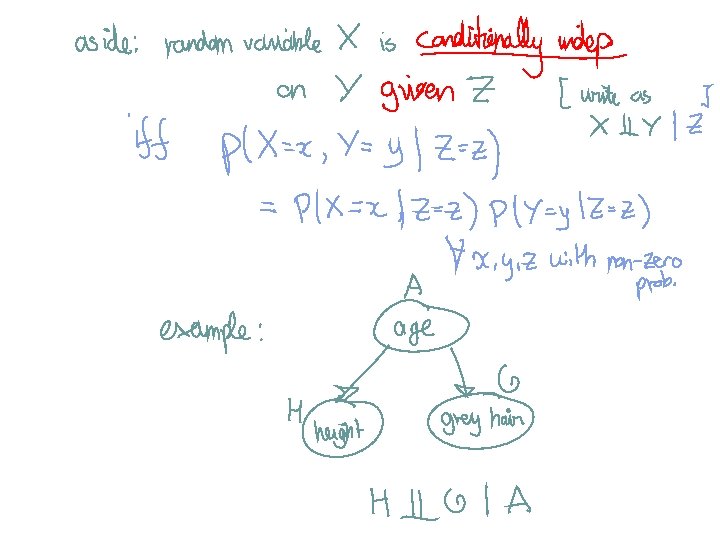 aside: random variable X is conditionally indep
on Y given Z [ write as ]
X ⫫ Y | Z
iff P(X=x, Y=y | Z=z)
= P(X=x | Z=z) P(Y=y | Z=z)
∀ x, y, z with non-zero
prob.
A
example: age
G
H
height grey hair
H ⫫ G | A